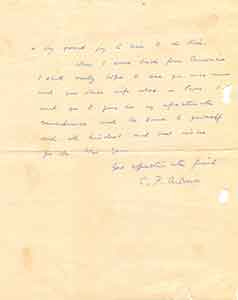 a great joy to me to do this.
When I come back from
I shall really hope to see you once more
and your dear wife also
ask you to give her my affectionate
remembrance and the same to yourself
and the kindest and best wishes
for the New Year.
Your affectionate friend
C. F. Andrews